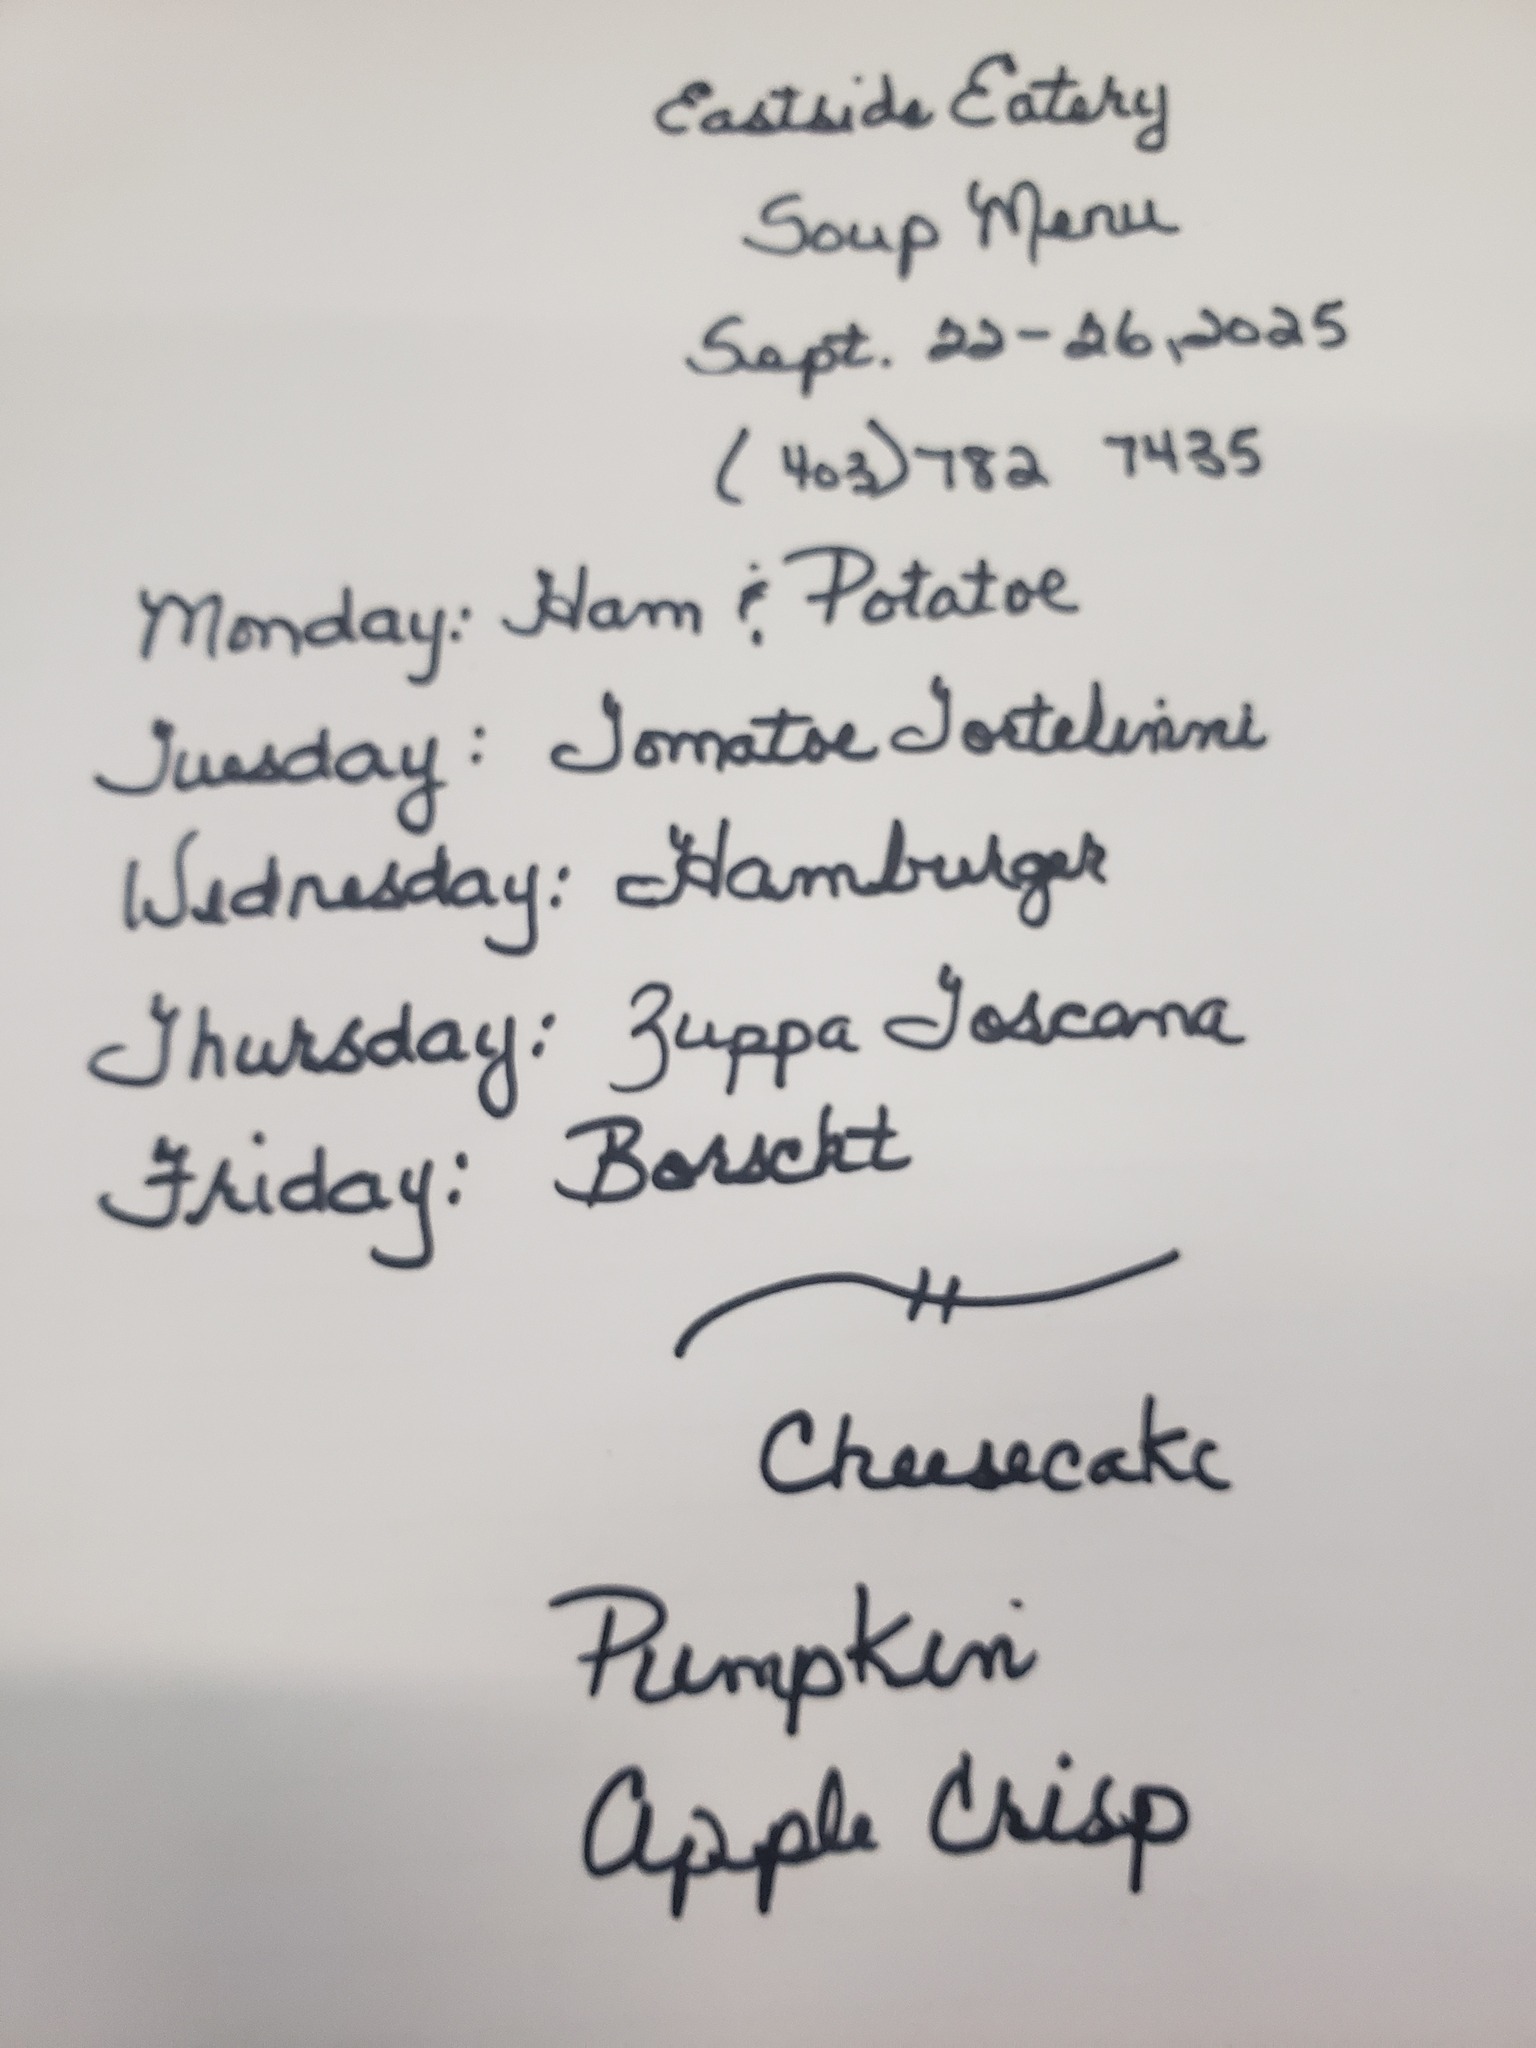 Eastside Eatery
Soup Menu
Sept. 22-26, 2025
(403) 782 7435
Monday: Ham & Potatoe
Tuesday: Tomatoe Tortelinni
Wednesday: Hamburger
Thursday: Zuppa Toscana
Friday: Borscht
Cheesecake
Pumpkin
Apple Crisp